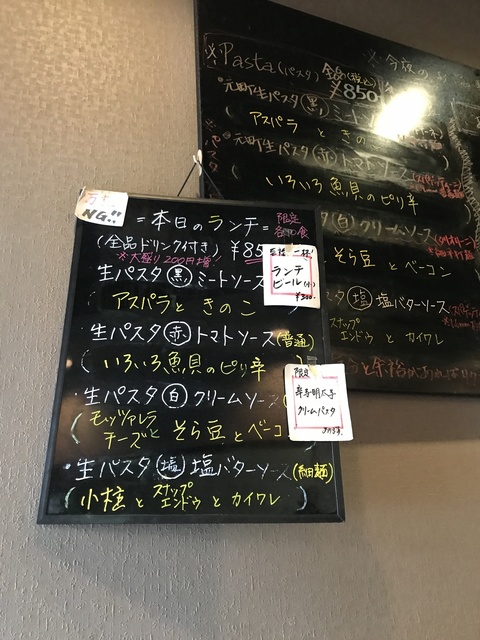 ※Pasta(パスタ) 全品(税込)
¥850
※今夜の
元町生パスタ(黒)ミートソース
アスパラ と きの
元町生パスタ(赤)トマトソース
いろいろ魚貝のピリ辛
(白)クリームソース
そら豆とベーコン
(塩)塩バターソース
スナップエンドウ と カイワレ
NG!!
=本日のランチ=
限定
各10食
(全品ドリンク付き) ¥85
※大盛り200円増!
生パスタ(黒)ミートソース
アスパラと きのこ
・生パスタ(赤)トマトソース(普通)
(いろいろ魚貝のピリ辛)
・生パスタ(白)クリームソース
(モッツァレラチーズと そら豆 と ベーコ
・生パスタ(塩)塩バターソース(細麺)
(小柱 と スナップエンドウ と カイワレ)
一杯!
ランチ
ビール(小)
¥300-
限定
辛子明太子
クリームパスタ